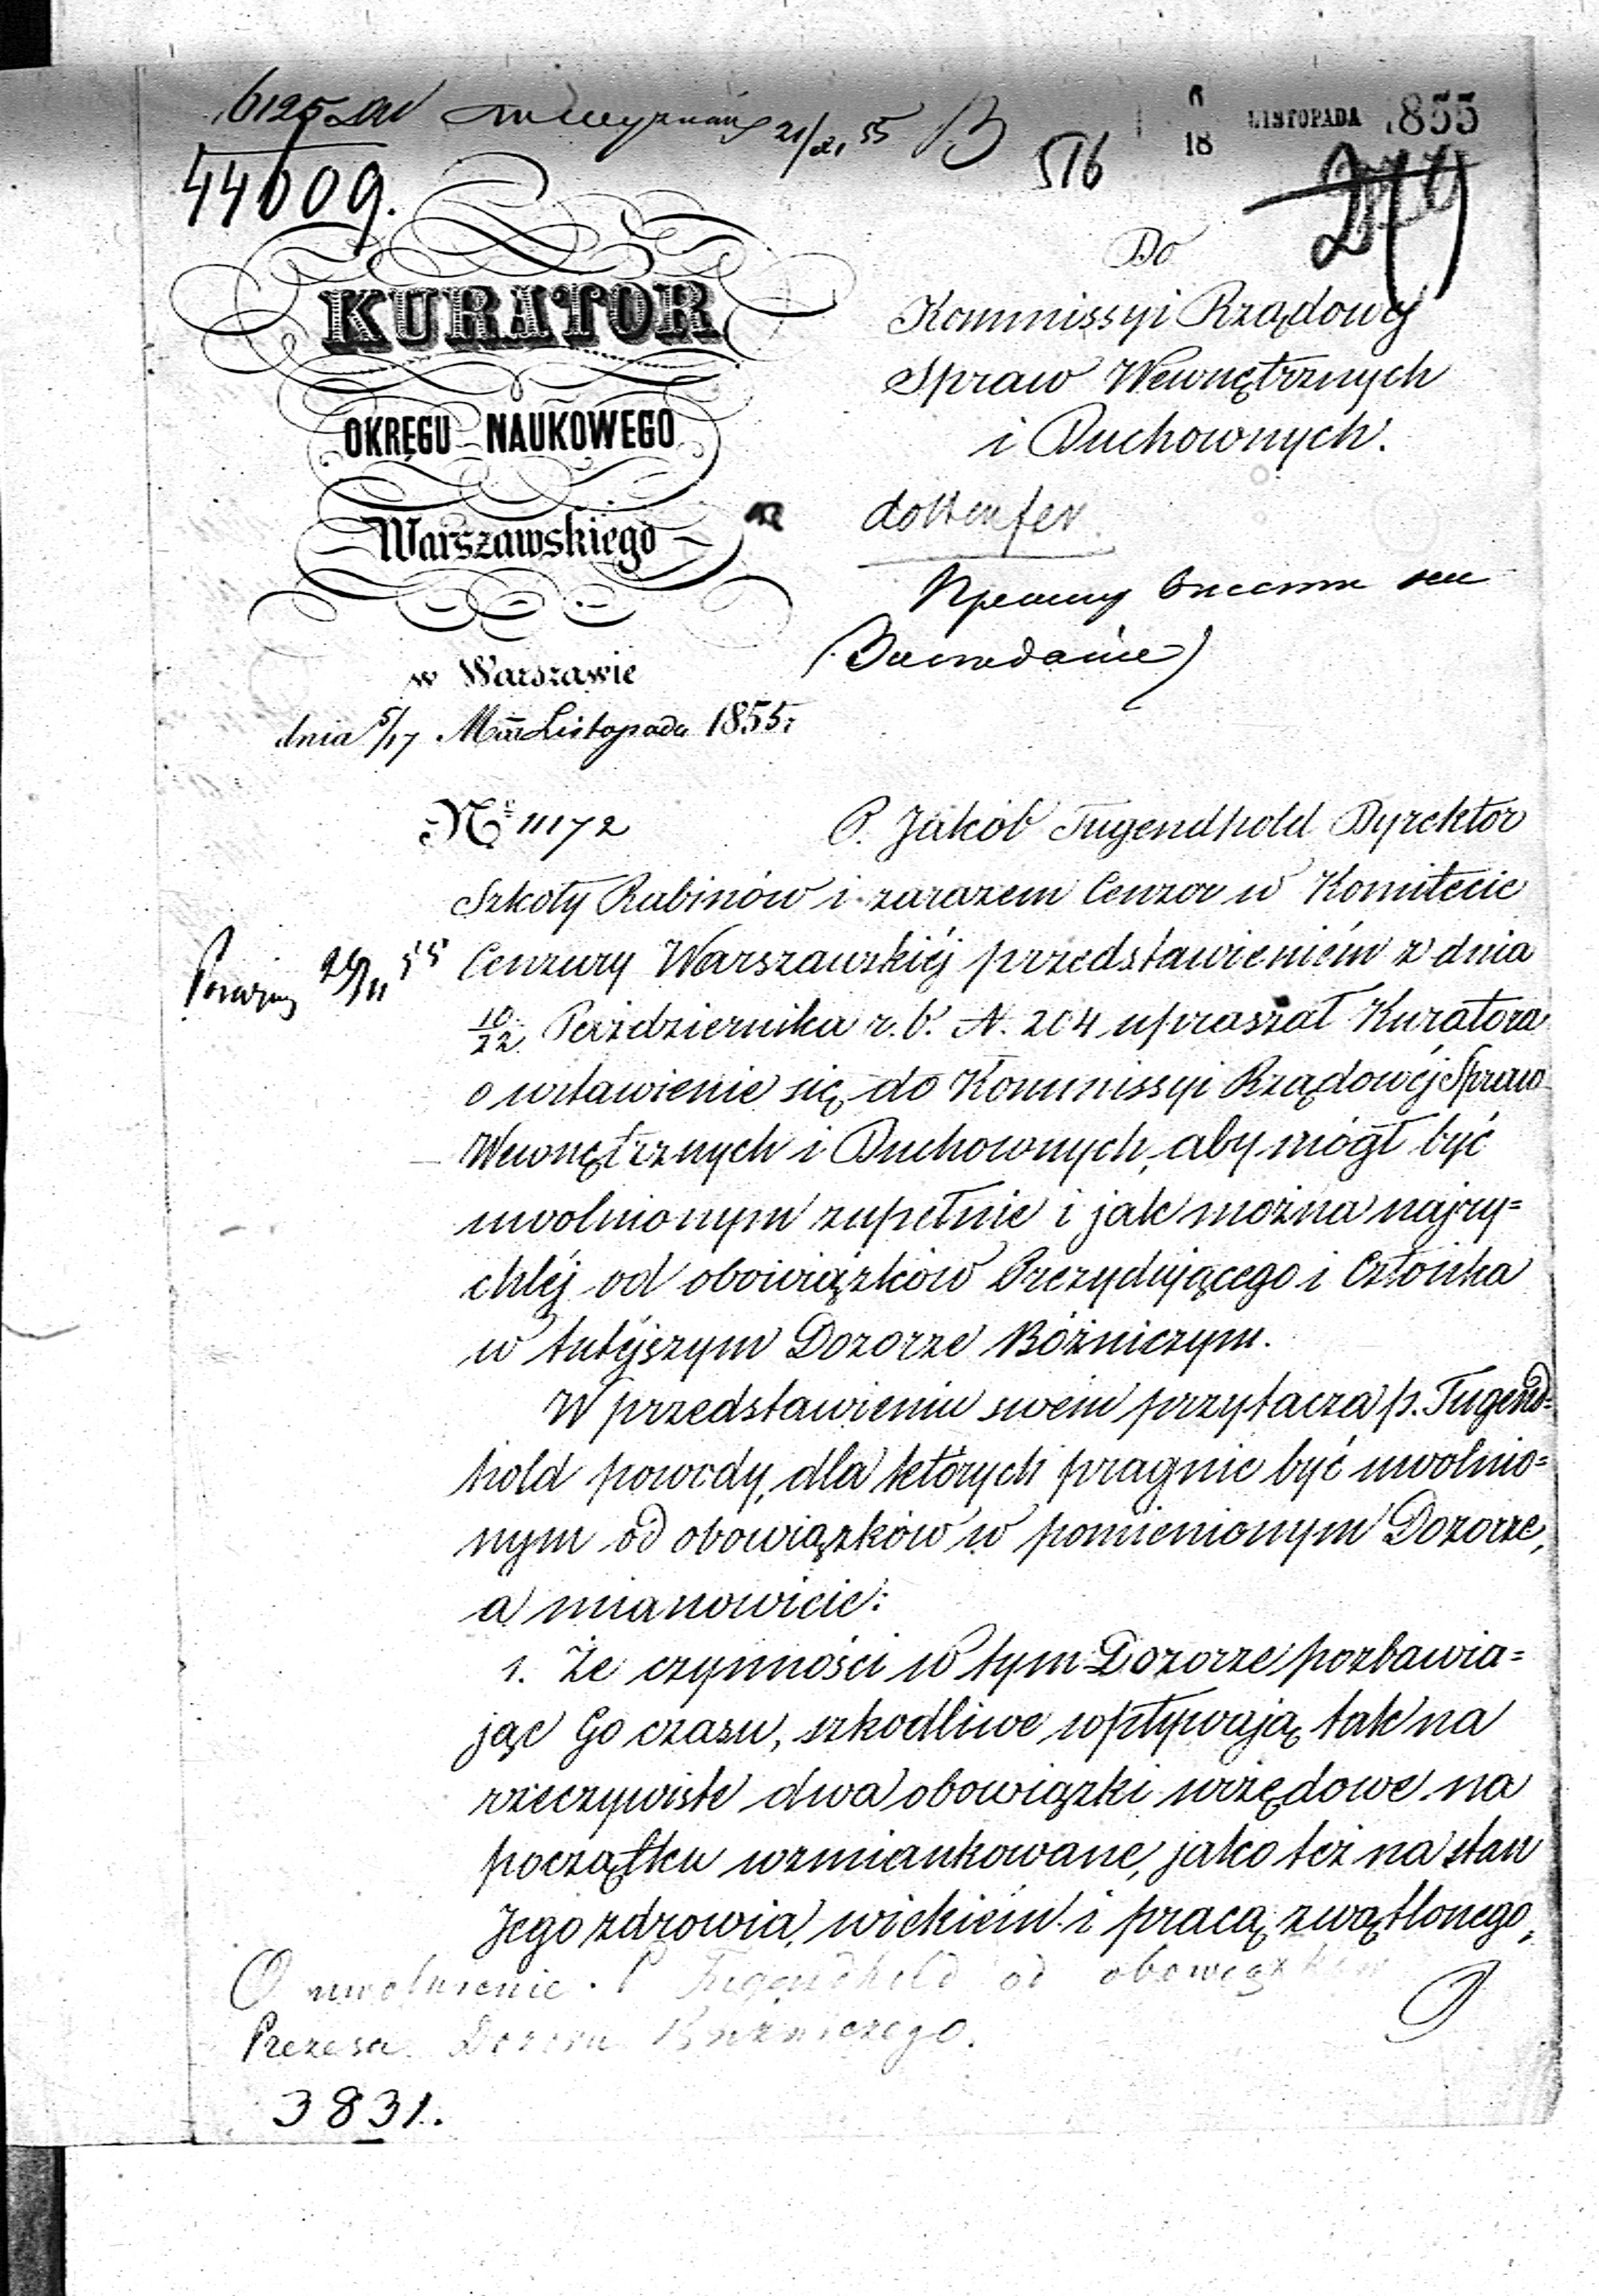 6125
21/XI 55
516
6
18
LISTOPADA 1855
44609.
KURATOR
OKRĘGU NAUKOWEGO
Warszawskiego
w Warszawie
dnia 5/17 Mca Listopada 1855 r.
Nr 11172
Do
Kommissyi Rządowéj
Spraw Wewnętrznych
i Duchownych.
P. Jakób Tugendhold Dyrektor
Szkoły Rabinów i zarazem Cenzor w Komitecie
Cenzury Warszawskiéj przedstawieniem z dnia
10/22 Października r. b. N. 204 upraszał Kuratora
o wstawienie się do Kommissyi Rządowéj Spraw
Wewnętrznych i Duchownych, aby mógł być
uwolnionym zupełnie i jak można najry=
chléj od obowiązków Prezydującego i Członka
w tutéjszym Dozorze Bóżniczym.
W przedstawieniu swem przytacza p. Tugend=
hold powody, dla których pragnie być uwolnio=
nym od obowiązków w pomienionym Dozorze,
a mianowicie:
1. Że czynności w tym Dozorze pozbawia=
jąc Go czasu, szkodliwe wpływają tak na
rzeczywiste dwa obowiązki urzędowe na
początku wzmiankowane, jako też na stan
Jego zdrowia, wiekiem i pracą zwątlonego,
O uwolnienie P Tugendhold od obowiązków
Prezesa Dozoru Bużniczego.
3831.